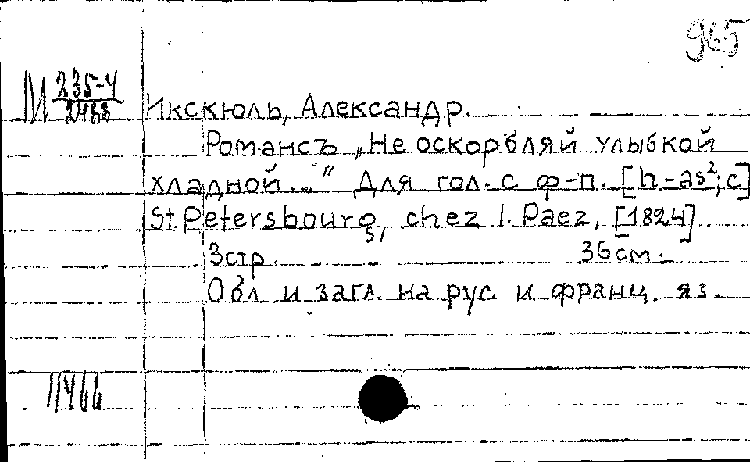 965
М 235-4
Икскюль, Александр.
Романсъ „Не оскорбляй улыбкой
хладной..." Для гол. с ф-п. [h-as²; c]
St. Petersbourg, chez I. Paez, [1824]
3 стр. 36 см.
Обл и загл. на рус. и франц. яз.
11466